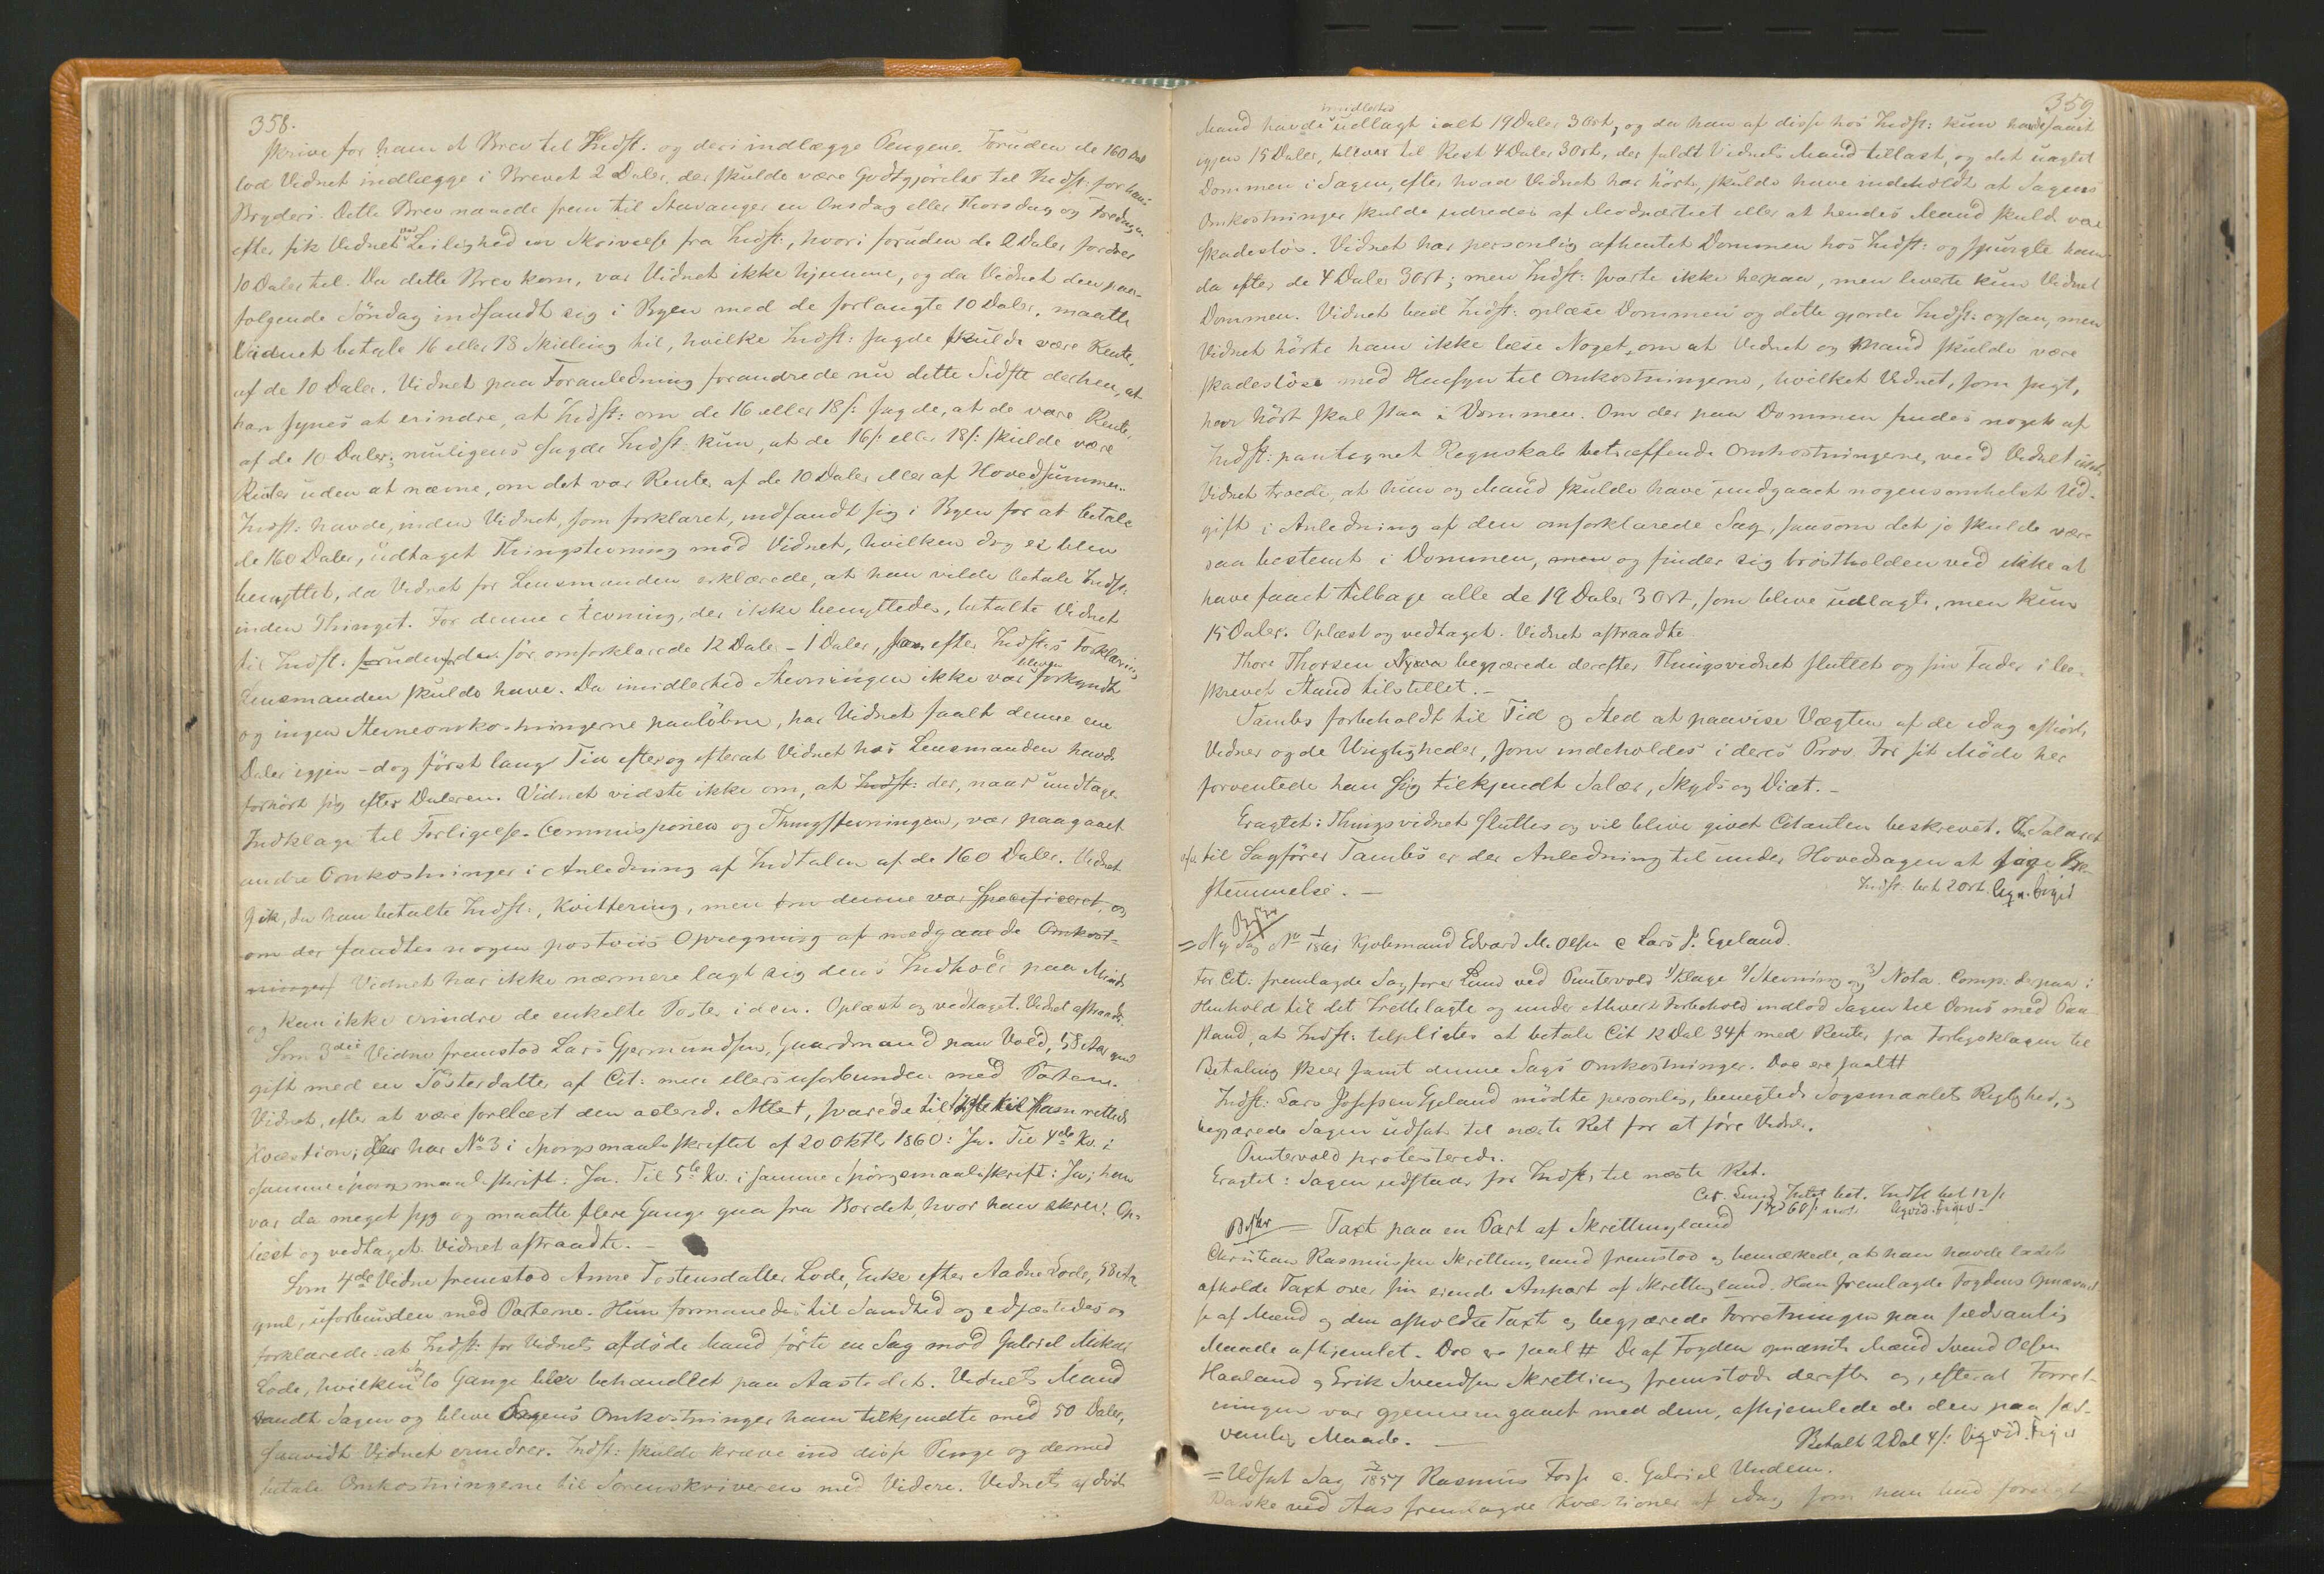 358.
skrive for ham et Brev til Indst. og deri indlægge Pengene. Foruden de 160 Dal
lod Vidnet indlægge i Brevet 2 Daler, der skulde være Godtgjörelse til Indst: for hans
Bryderi. Dette Brev naaede frem til Stavanger en Onsdag eller Thorsdag og Fredagen
efter fik Vidnet Leilighed en Skrivelse fra Indst:, hvori foruden de 2 Daler fordres
10 Daler til. Da dette Brev kom, var Vidnet ikke hjemme, og da Vidnet den paa-
følgende Söndag indfandt sig i Byen med de forlangte 10 Daler, maatte
Vidnet betale 16 eller 18 Skilling til, hvilke Indst: sagde skulde være Rente,
af de 10 Daler. Vidnet paa Foranledning forandrede nu dette Sidste derhen, at
han synes at erindre, at Indst: om de 16 eller 18 s: sagde, at de være Renter
af de 10 Daler; muligens sagde Indst. kun, at de 16 s: eller 18 s: skulde være
Renter uden at nævne, om det var Renter af de 10 Daler eller af Hovedsummen.
Indst: havde, inden Vidnet, som forklaret, indfandt sig i Byen for at betale
de 160 Daler, udtaget Thingstevning mod Vidnet, hvilken dog ei blev
benyttet, da Vidnet for Lensmanden erklærede, at han vilde betale Indst:
inden Thinget. For denne Stevning, der ikke benyttedes, betalte Vidnet
til Indst. foruden de för omforklarede 12 Daler - 1 Daler, som efter Indst:s Forklaring
Lensmanden skulde have. Da imidlertid Stevningen ikke var bleven forkyndt
og ingen Stevneomkostningerne paalöbne, har Vidnet faaet denne ene
Daler igjen - dog först lang Tid efter og efterat Vidnet hos Lensmanden havde
forhört sig efter Daleren. Vidnet vidste ikke om, at Indst: der, naar undtages
Indklage til Forligelses Commissionen og Thingstevningen, var paagaaet
andre Omkostninger i Anledning af Indtalen af de 160 Daler. Vidnet
fik, da han betalte Indst:, Kvittering, men om denne var specificeret, og
om der fandtes nogen postviis Opregning af medgaaede Omkost-
ninger Vidnet har ikke nærmere lagt sig dens Indhold paa Minde
og kan ikke erindre de enkelte Poster i den. Oplæst og vedtaget. Vidnet aftraadte.
Som 3die Vidne fremstod Lars Gjermundsen, Gaardmand paa Vold, 58 Aar gml
gift med en Sösterdatter af Cit: men ellers uforbunden med Parterne.
Vidnet, efter at være forelæst den acterede Attest, svarede til
Kvæstion; No 3 i Spörgsmaalsskriftet af 20 Oktbr 1860: Ja. Til 4de Kv. i
samme Spörgsmaalsskrift: Ja. Til 5te Kv. i samme Spörgsmaalsskrift: Ja; han
var da meget syg og maatte flere Gange gaa fra Bordet, hvor han skrev. Op-
læst og vedtaget. Vidnet aftraadte. -
Som 4de Vidne fremstod Anne Tostensdatter Lode, Enke efter Aadne Lode, 58 Aar
gml, uforbunden med Parterne. Hun formanedes til Sandhed og edfæstedes og
forklarede: at Indst: for Vidnets afdöde Mand förte en Sag mod Gabriel Mikal
Lode, hvilken to Gange blev behandlet paa Aastedet. Vidnets Mand
vandt Sagen og bleve Sagens Omkostninger ham tilkjendte med 50 Daler,
saavidt Vidnet erindrer. Indst: skulde kræve ind disse Penge og dermed
betale Omkostningerne til Sorenskriveren med Videre. Vidnets
359
Mand havde imidlertid udlagt ialt 19 Daler 3 Ort, og da han af disse hos Indst: kun havde faaet
igjen 15 Daler, blev til Rest 4 Daler 3 Ort, der faldt Vidnets Mand tillast, og det uagtet
Dommen i Sagen, efter hvad Vidnet har hört, skulde have indeholdt at Sagens
Omkostninger skulde udredes af Modpartiet eller at hendes Mand skulde være
skadeslös. Vidnet har personlig afhentet Dommen hos Indst: og spurgte ham
da efter de 4 Daler 3 Ort; men Indst: svarte ikke herpaa, men leverte kun Vidnet
Dommen. Vidnet bad Indst: oplæse Dommen og dette gjorde Indst: ogsaa, men
Vidnet hörte ham ikke læse Noget om at Vidnet og Mand skulde være
skadeslöse med Hensyn til Omkostningerne, hvilket Vidnet, som sagt,
har hört skal staa i Dommen. Om der paa Dommen findes noget af
Indst: paategnet Regnskab betræffende Omkostningerne, veed Vidnet ikke
Vidnet troede, at hun og Mand skulde have undgaaet nogensomhelst Ud-
gift i Anledning af den omforklarede Sag, saasom det jo skulde være
saa bestemt i Dommen, men og finder sig bröstholden ved ikke at
have faaet tilbage alle de 19 Daler 3 Ort, som bleve udlagte, men kun
15 Daler. Oplæst og vedtaget. Vidnet aftraadte
Thore Thorsen begjærede derefter Thingsvidnet sluttet og sin Tader i be-
skrevet Stand tilstillet. -
Tambs forbeholdt til Tid og Sted at paavise Vægten af de idag afhörte
Vidner og de Urigtigheder, som indeholdes i deres Prov. For sit Möde her
forventede han sig tilkjendt Salær, Skyds og Diæt. -
Eragtet: Thingsvidnet sluttes og vil blive givet Citanten beskrevet. Om Salæret
til Sagförer Tambs er der Anledning til under Hovedsagen at söge Be-
stemmelse. -
Indst. bet 2 Ort
= Ny Sag No 1/1861 Kjöbmand Edvard M. Olsen c Lars J. Egeland.
For Cit: fremlagde Sagförer Lund ved Puntervold 1) Klage 2) Stevning og 3) Nota. Comp: derpaa i
Henhold til det Irettelagte og under ethvert Forbehold indlod Sagen til Doms med Paa-
stand, at Indst: tilpligtes at betale Cit 12 Dal 34 s med Renter fra Forligsklagen til
Betaling skeer samt denne Sags Omkostninger. Doc ere saal#
Indst: Lars Josefsen Egeland mödte personlig, benegtede Sogsmaalets Rigtighed, og
begjærede Sagen udsat til næste Ret for at före Vidner.
Puntervold protesterede.
Eragtet: Sagen udstaar for Indst: til næste Ret.
Cit. Lund Intet bet. Indst bet 12 s
Taxt paa en Part af Skrettingland
Christian Rasmussen Skrettingland fremstod og bemærkede, at han havde ladet
afholde Taxt over sin eiende Anpart af Skrettingland. Han fremlagde Fogdens Opnævnel
se af Mænd og den afholdte Taxt og begjærede Forretningen paa sædvanlig
Maade afhjemlet. Doc ere saal # De af Fogden opnævnte Mænd Svend Olsen
Haaland og Erik Svendsen Skretting fremstode derefter og, efterat Forret-
ningen var gjennemgaaet med dem, afhjemlede de den paa sæd-
vanlig Maade. -
Betalt 2 Dal 4 s:
= Udsat Sag 1857 Rasmus Fosse c. Gabriel Undem.
ved Aas fremlagde Kvæstioner af idag som han bad forelagt